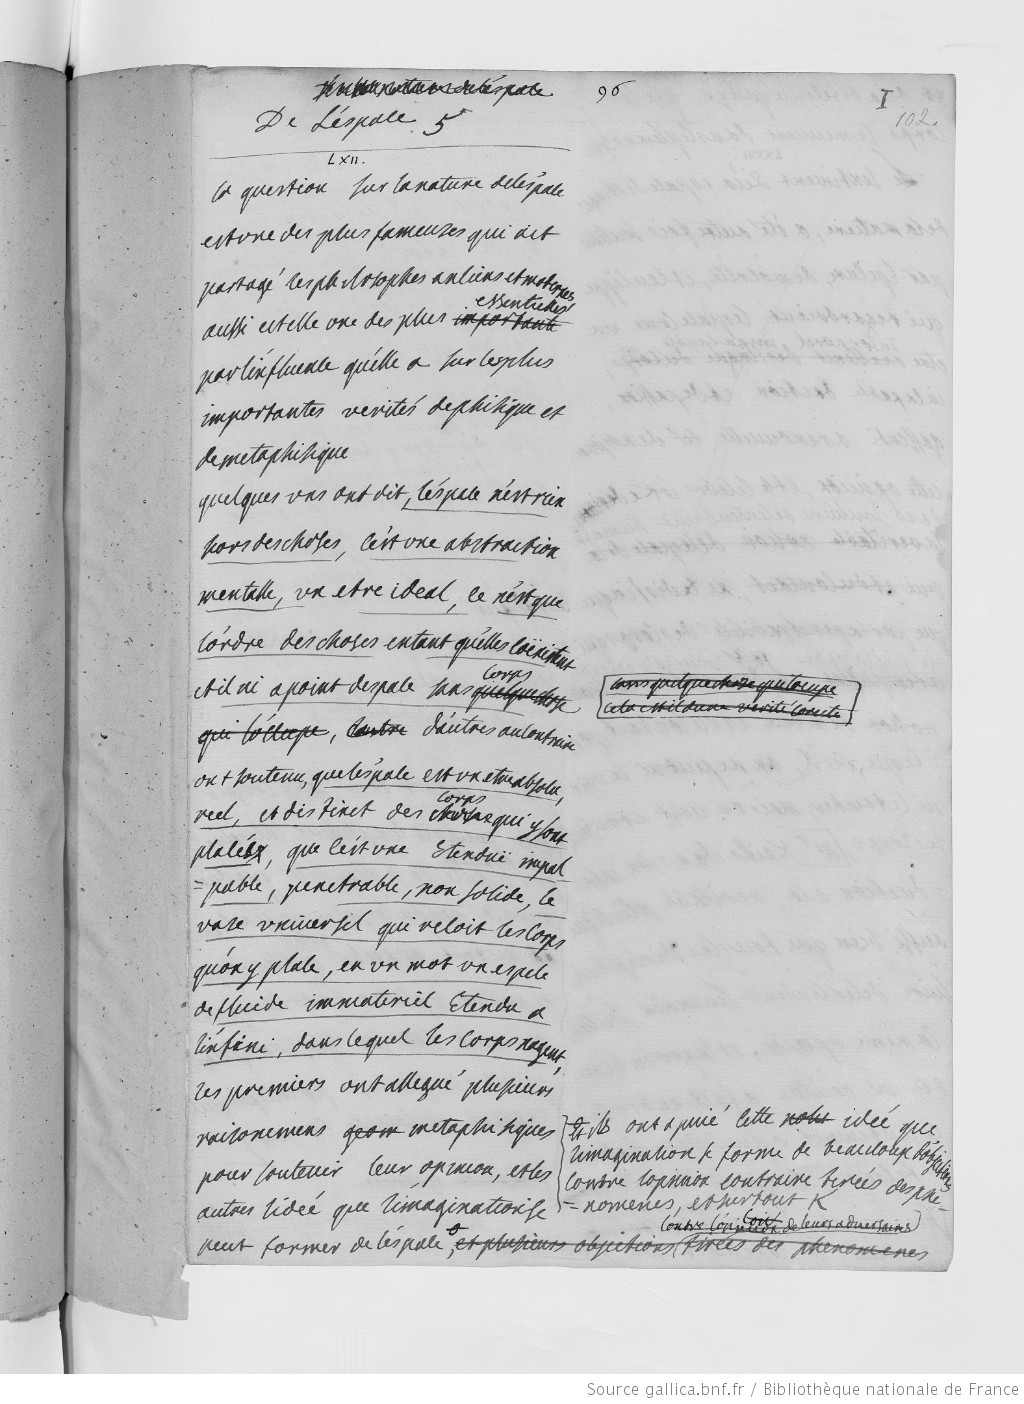 de l'espace
96
I
102
De L'éspace 5
LXII.
la question sur la nature de l'éspace
est une des plus fameuses qui ait
partagé les philosophes anciens et modernes,
essentielles
aussi est elle une des plus importante
par l'influence qu'elle a sur les plus
importantes verités de phisique et
de metaphisique
quelques uns ont dit, l'éspace n'est rien
hors des choses, c'est une abstraction
mentalle, un etre ideal, ce n'est que
l'ordre des choses entant qu'elles coëxistent
corps
et il ni a point d'espace sans quelque chose
sans quelque chose qui l'ocupe
cela est il d'une verité
qui l'occupe, d'autres au contraire
ont soutenu, que l'éspace est un etre absolu,
corps
reel, et distinct des choses qui y sont
placés, que c'est une Etenduë impal
=pable, penetrable, non solide, le
vase universel qui recoit les corps
qu'on y place, en un mot un espece
de fluide immateriel Etendu a
l'infini, dans lequel les corps nagent,
les premiers ont allegué plusieurs
raisonemens metaphisiques
pour soutenir leur opinion, et les
autres l'idée que l'imagination se
peut former de l'éspace, et plusieurs objections (tirées des phenomenes
et ils ont apuié cette idée que
l'imagination se forme de beaucoup d'objections
contre l'opinion contraire tirées des phe-
=nomenes, et surtout
contre l'opinion de leurs adversaires)